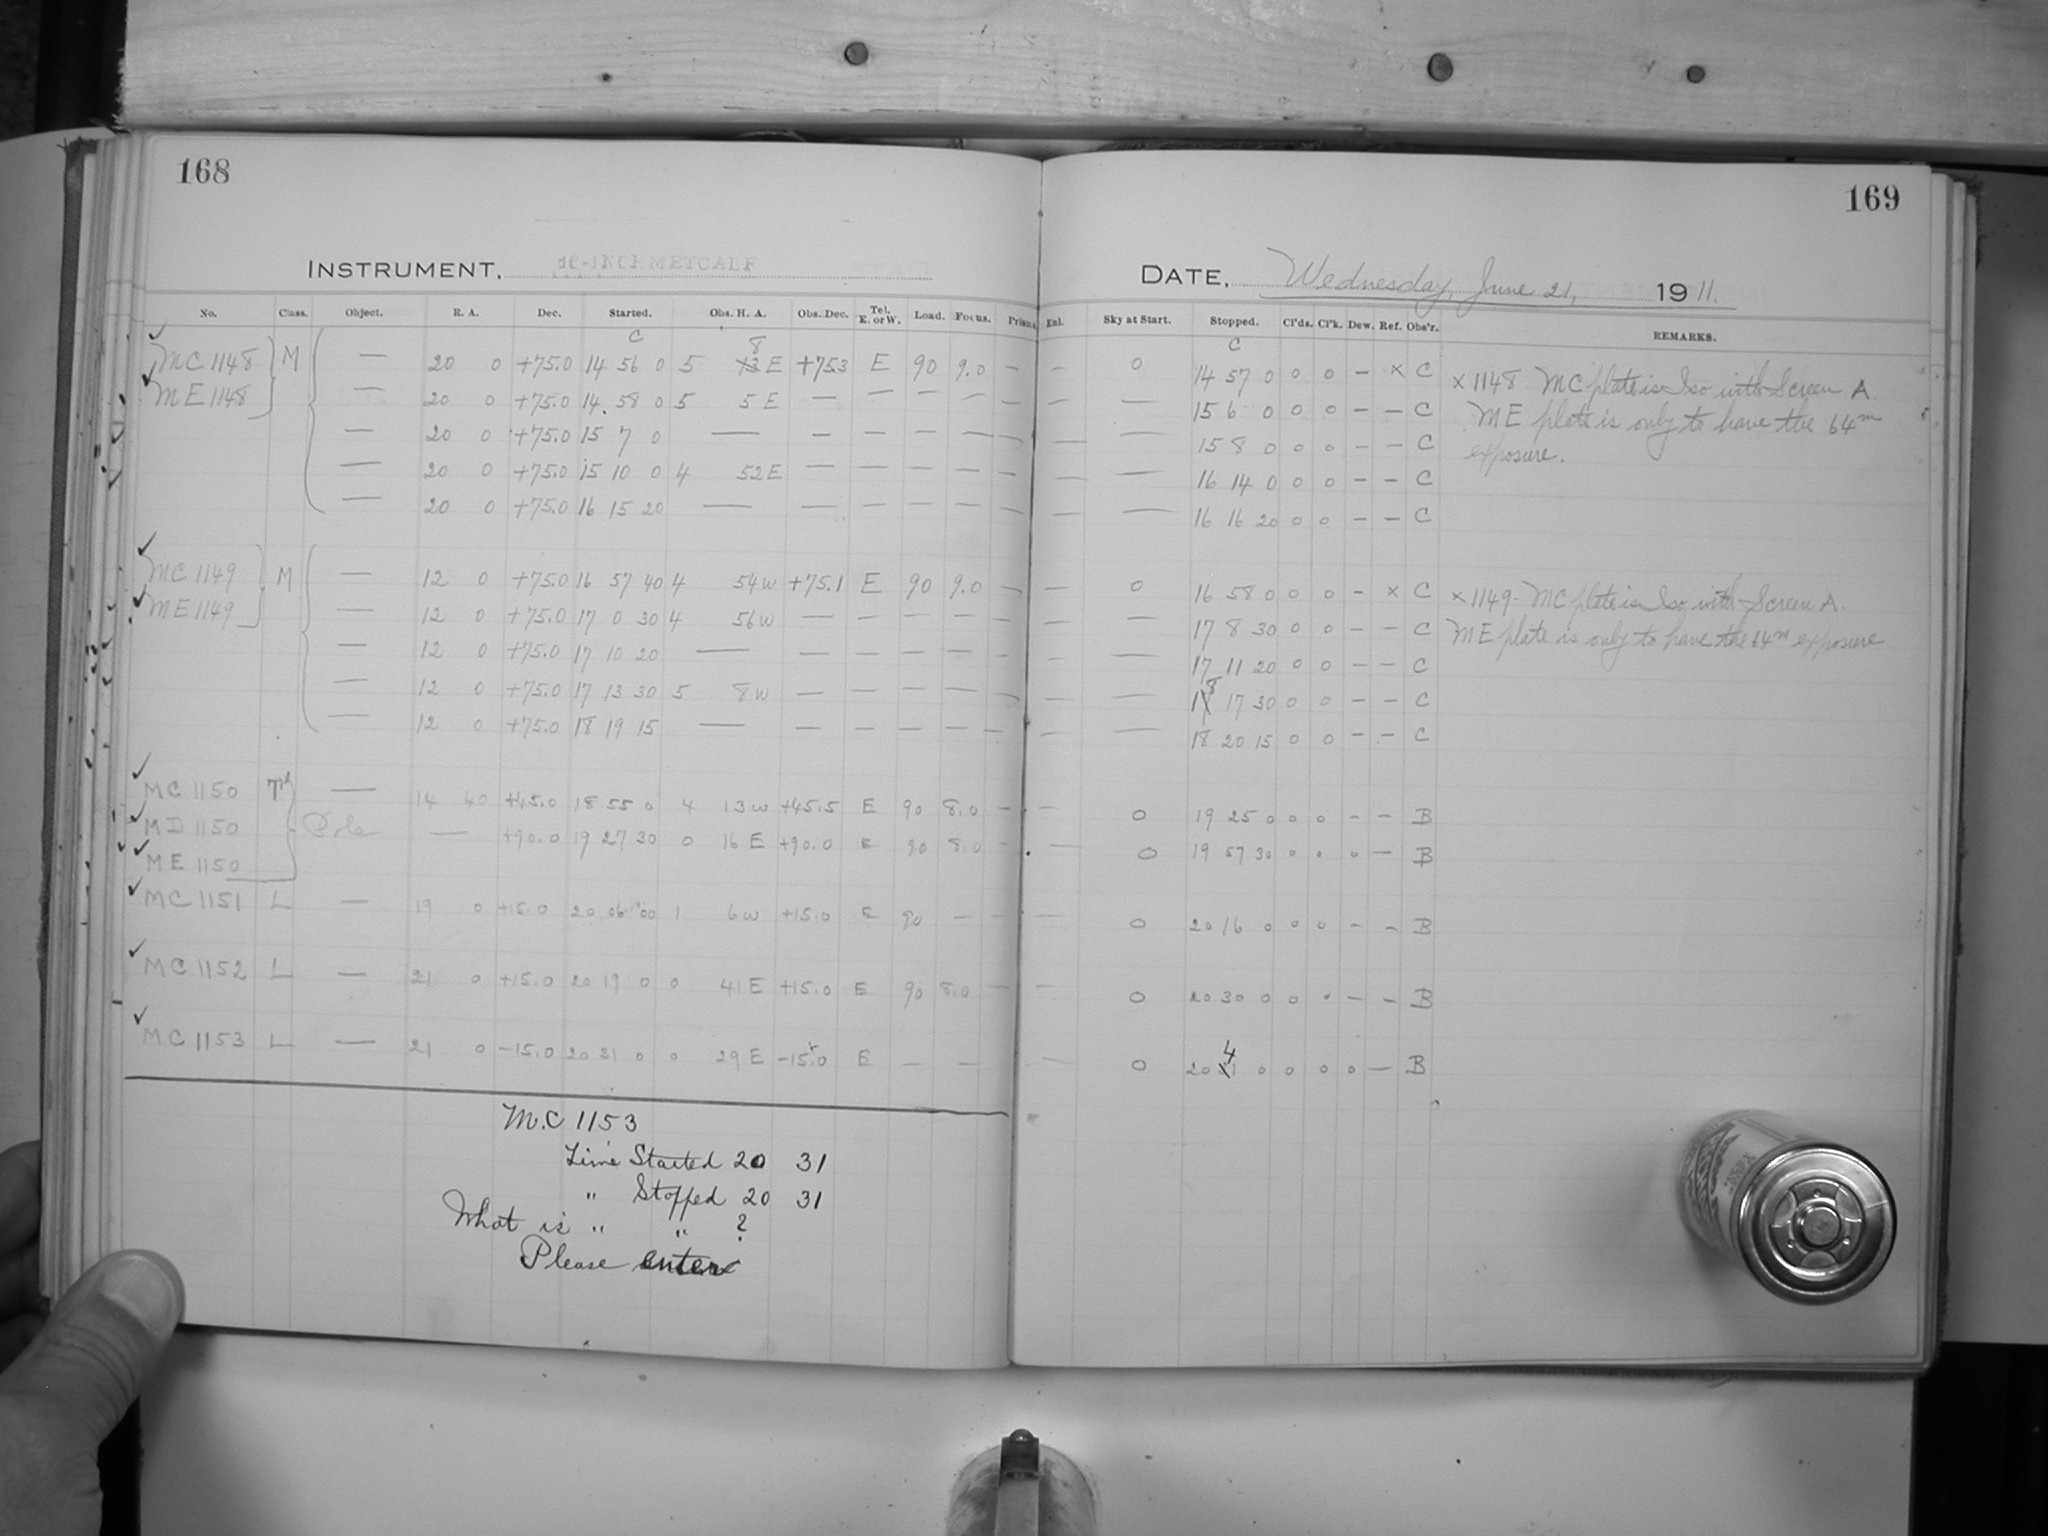 168
INSTRUMENT. 16-INCH METCALF
No. Class. Object. R. A. Dec. Started. Obs. H. A. Obs. Dec. Tel. E. or W. Load. Focus. Prism.
C 8
MC 1148 M — 20 0 +75.0 14 56 0 5 E +75.3 E 90 9.0 —
ME 1148 — 20 0 +75.0 14 58 0 5 5 E — — — — —
— 20 0 +75.0 15 7 0 — — — — — —
— 20 0 +75.0 15 10 0 4 52 E — — — — —
— 20 0 +75.0 16 15 20 — — — — — —
MC 1149 M — 12 0 +75.0 16 57 40 4 54 W +75.1 E 90 9.0 —
ME 1149 — 12 0 +75.0 17 0 30 4 56 W — — — — —
— 12 0 +75.0 17 10 20 — — — — — —
— 12 0 +75.0 17 13 30 5 8 W — — — — —
— 12 0 +75.0 18 19 15 — — — — — —
MC 1150 — 14 40 +45.0 18 55 0 4 13 W +45.5 E 90 8.0 —
MD 1150 Pole — +90.0 19 27 30 0 16 E +90.0 E 90 8.0 —
ME 1150
MC 1151 L — 19 0 +15.0 20 06 00 1 6 W +15.0 E 90 — —
MC 1152 L — 21 0 +15.0 20 19 0 0 41 E +15.0 E 90 8.0 —
MC 1153 L — 21 0 -15.0 20 31 0 0 29 E -15.0 E — —
M.C 1153
Time Started 20 31
" Stopped 20 31
What is " " ?
Please enter
169
DATE, Wednesday, June 21, 1911.
Enl. Sky at Start. Stopped. Cl'ds. Cl'k. Dew. Ref. Obs'r. REMARKS.
C
— 0 14 57 0 0 0 — × C × 1148 MC plate is Iso with Screen A.
— — 15 6 0 0 0 — — C ME plate is only to have the 64m
— — 15 8 0 0 0 — — C exposure.
— — 16 14 0 0 0 — — C
— — 16 16 20 0 0 — — C
— 0 16 58 0 0 0 — × C × 1149 - MC plate is Iso with Screen A.
— — 17 8 30 0 0 — — C ME plate is only to have the 64m exposure.
— — 17 11 20 0 0 — — C
— — 18 17 30 0 0 — — C
— — 18 20 15 0 0 — — C
— 0 19 25 0 0 0 — — B
— 0 19 57 30 0 0 0 — B
— 0 20 16 0 0 0 — — B
— 0 20 30 0 0 0 — — B
— 0 20 41 0 0 0 0 — B